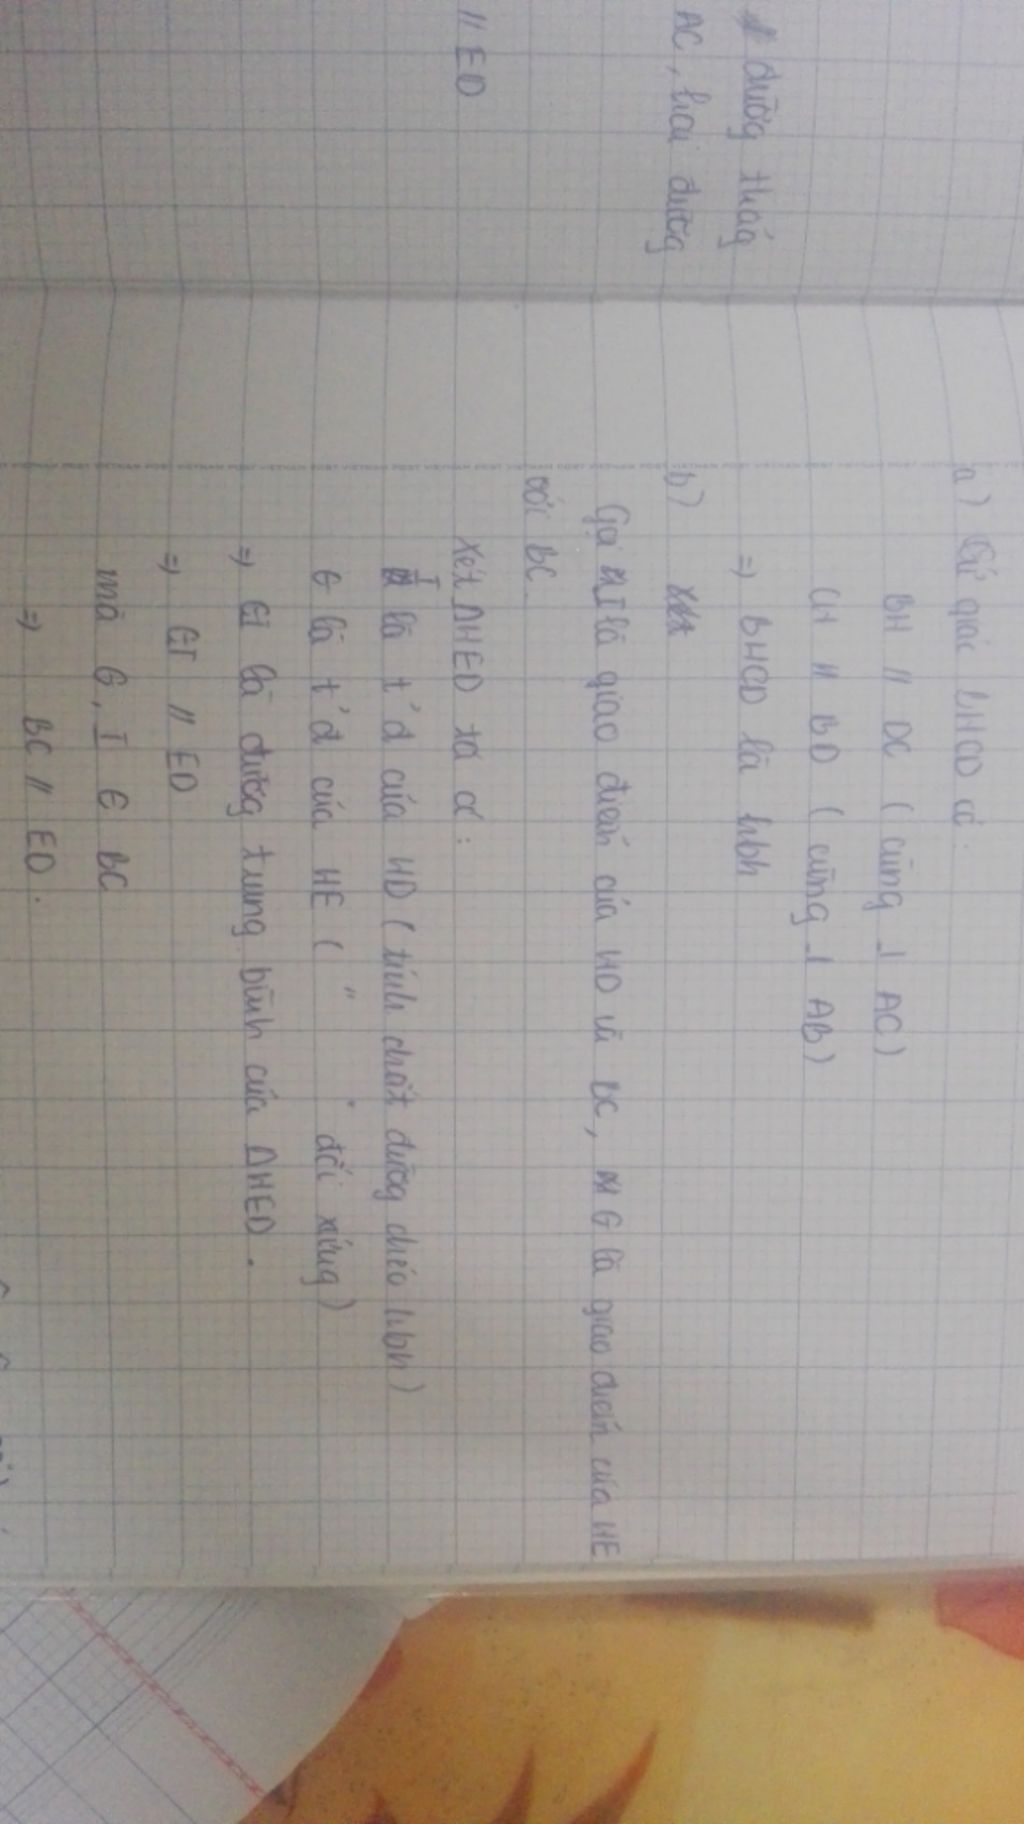 đường thẳg
AC, hai đường
// ED
a) Tứ giác BHCD có:
BH // DC ( cùng ⊥ AC)
CH // BD ( cùng ⊥ AB)
=> BHCD là hbh
b)
Gọi I là giao điểm của HD và BC, G là giao điểm của HE
với BC.
Xét ΔHED ta có:
I là t'd của HD ( tính chất đường chéo hbh)
G là t'd của HE ( " " đối xứng)
=> GI là đường trung bình của ΔHED.
=> GI // ED
mà G, I ∈ BC
=> BC // ED.